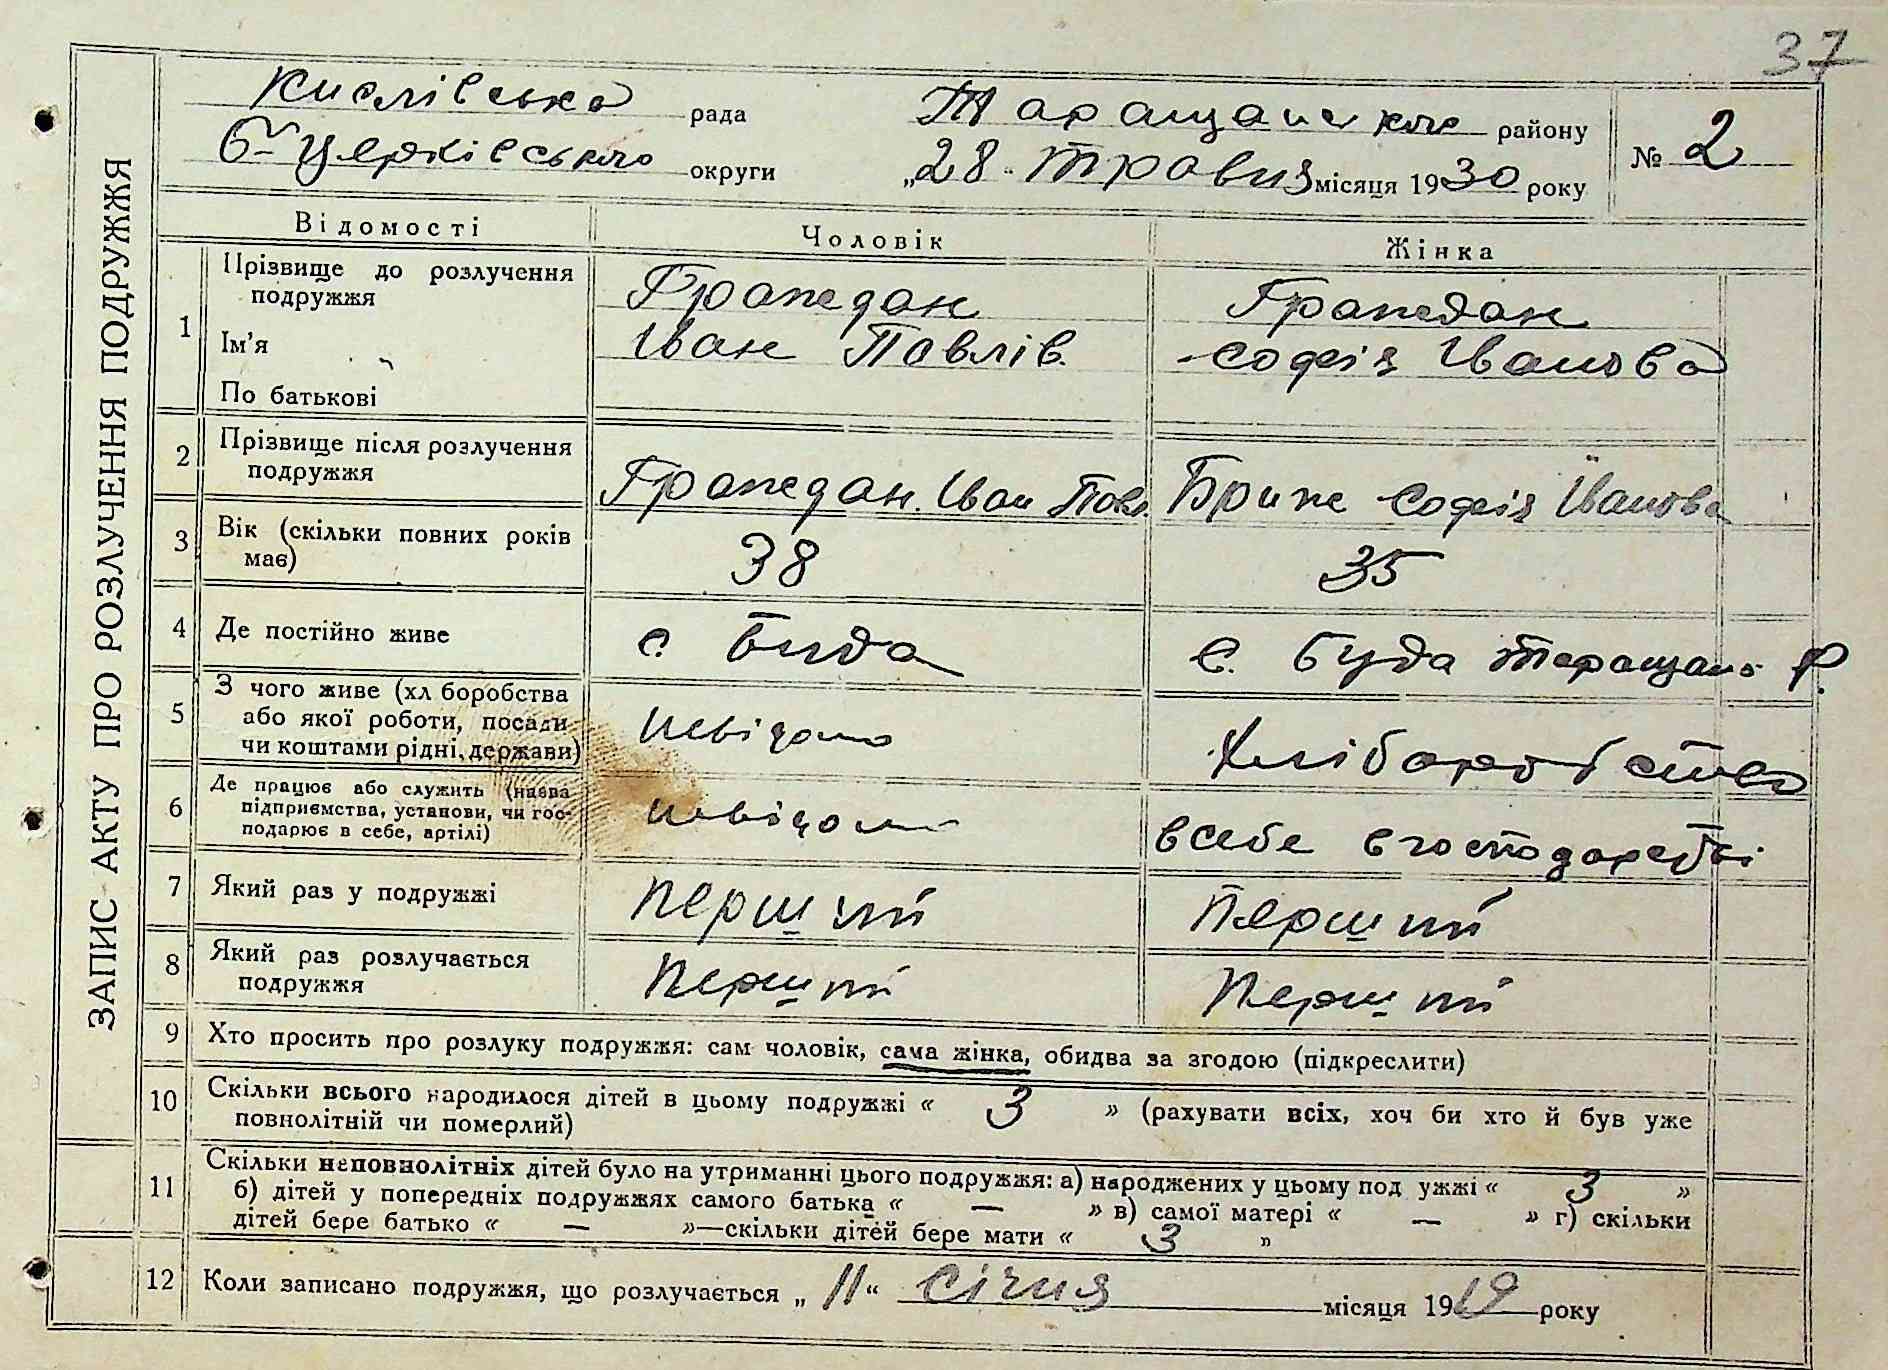 37
ЗАПИС АКТУ ПРО РОЗЛУЧЕННЯ ПОДРУЖЖЯ
Кислівська рада Таращанського району № 2
Б-Церківського округи „28" травня місяця 1930 року
Відомості Чоловік Жінка
1 Прізвище до розлучення подружжя Граждан Граждан
Ім'я Іван Павлів. Софія Іванова
По батькові
2 Прізвище після розлучення
подружжя Граждан Іван Павл. Бриж Софія Іванова
3 Вік (скільки повних років
має) 38 35
4 Де постійно живе с. Буда с. Буда Таращан. р.
5 З чого живе (хл боробства
або якої роботи, посади,
чи коштами рідні, держави) невідомо Хліборобство
6 Де працює або служить (назва
підприємства, установи, чи гос-
подарює в себе, артілі) невідомо в себе в господарстві
7 Який раз у подружжі Перший Перший
8 Який раз розлучається
подружжя Перший Перший
9 Хто просить про розлуку подружжя: сам чоловік, сама жінка, обидва за згодою (підкреслити)
10 Скільки всього народилося дітей в цьому подружжі « 3 » (рахувати всіх, хоч би хто й був уже
повнолітній чи померлий)
11 Скільки неповнолітніх дітей було на утриманні цього подружжя: а) народжених у цьому под ужжі « 3 »
б) дітей у попередніх подружжях самого батька « — » в) самої матері « — » г) скільки
дітей бере батько « — »—скільки дітей бере мати « 3 »
12 Коли записано подружжя, що розлучається „ 11 “ січня місяця 1919 року